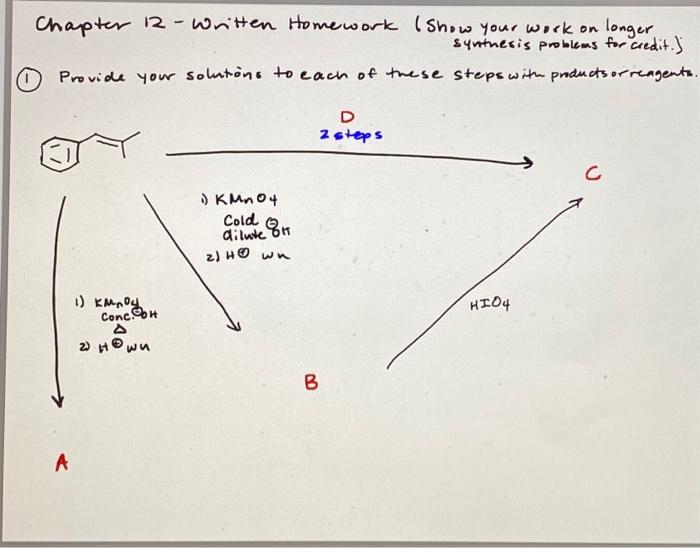 Chapter 12 - Written Homework (Show your work on longer
synthesis problems for credit.)
① Provide your solutions to each of these steps with products or reagents.
D
2 steps
C
1) KMnO4
Cold
dilute ⊖OH
2) H⊕ wu
HIO4
1) KMnO4
Conc. ⊖OH
Δ
2) H⊕ wu
B
A